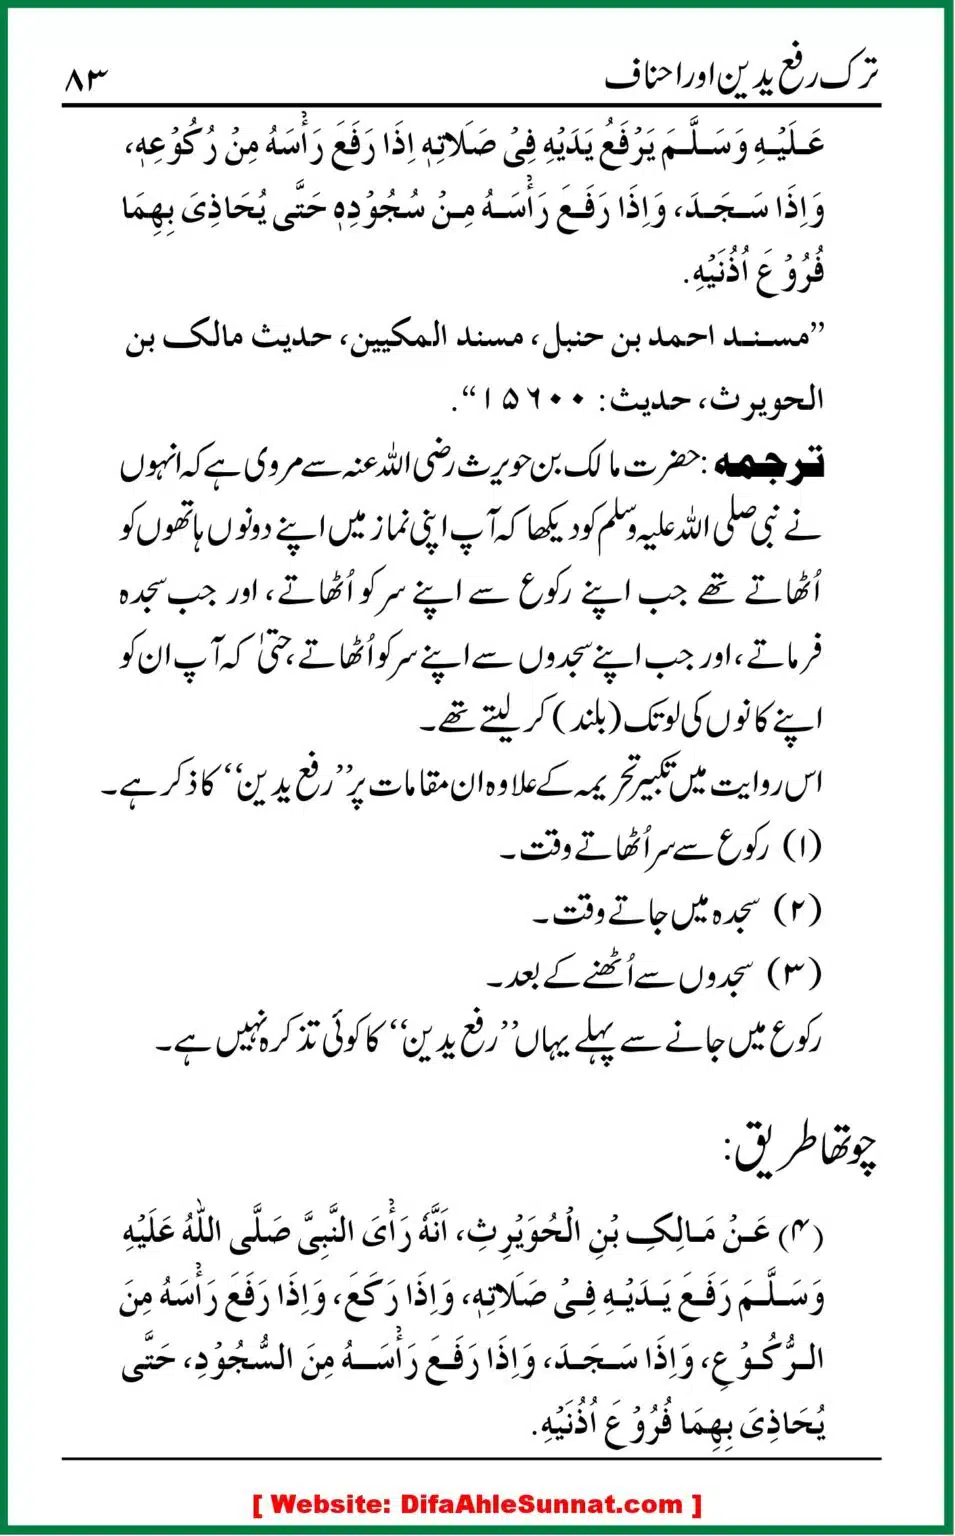 ترک رفع یدین اور احناف ۸۳
عَلَيْهِ وَسَلَّمَ يَرْفَعُ يَدَيْهِ فِىْ صَلَاتِهٖ اِذَا رَفَعَ رَأْسَهُ مِنْ رُكُوْعِهٖ،
وَاِذَا سَجَدَ، وَاِذَا رَفَعَ رَأْسَهُ مِنْ سُجُوْدِهٖ حَتَّى يُحَاذِىَ بِهِمَا
فُرُوْعَ اُذُنَيْهِ.
”مسند احمد بن حنبل، مسند المکیین، حدیث مالک بن
الحویرث، حدیث: ۱۵۶۰۰“.
ترجمه: حضرت مالک بن حویرث رضی اللہ عنہ سے مروی ہے کہ انہوں
نے نبی صلی اللہ علیہ وسلم کو دیکھا کہ آپ اپنی نماز میں اپنے دونوں ہاتھوں کو
اُٹھاتے تھے جب اپنے رکوع سے اپنے سر کو اُٹھاتے، اور جب سجدہ
فرماتے، اور جب اپنے سجدوں سے اپنے سر کو اُٹھاتے، حتیٰ کہ آپ ان کو
اپنے کانوں کی لو تک (بلند) کر لیتے تھے۔
اس روایت میں تکبیر تحریمہ کے علاوہ ان مقامات پر ”رفع یدین“ کا ذکر ہے۔
(۱) رکوع سے سر اُٹھاتے وقت۔
(۲) سجدہ میں جاتے وقت۔
(۳) سجدوں سے اُٹھنے کے بعد۔
رکوع میں جانے سے پہلے یہاں ”رفع یدین“ کا کوئی تذکرہ نہیں ہے۔
چوتھا طریق:
(۴) عَنْ مَالِكِ بْنِ الْحُوَيْرِثِ، اَنَّهٗ رَأَىَ النَّبِىَّ صَلَّى اللهُ عَلَيْهِ
وَسَلَّمَ رَفَعَ يَدَيْهِ فِىْ صَلَاتِهٖ، وَاِذَا رَكَعَ، وَاِذَا رَفَعَ رَأْسَهُ مِنَ
الرُّكُوْعِ، وَاِذَا سَجَدَ، وَاِذَا رَفَعَ رَأْسَهُ مِنَ السُّجُوْدِ، حَتَّى
يُحَاذِىَ بِهِمَا فُرُوْعَ اُذُنَيْهِ.
[ Website: DifaAhleSunnat.com ]